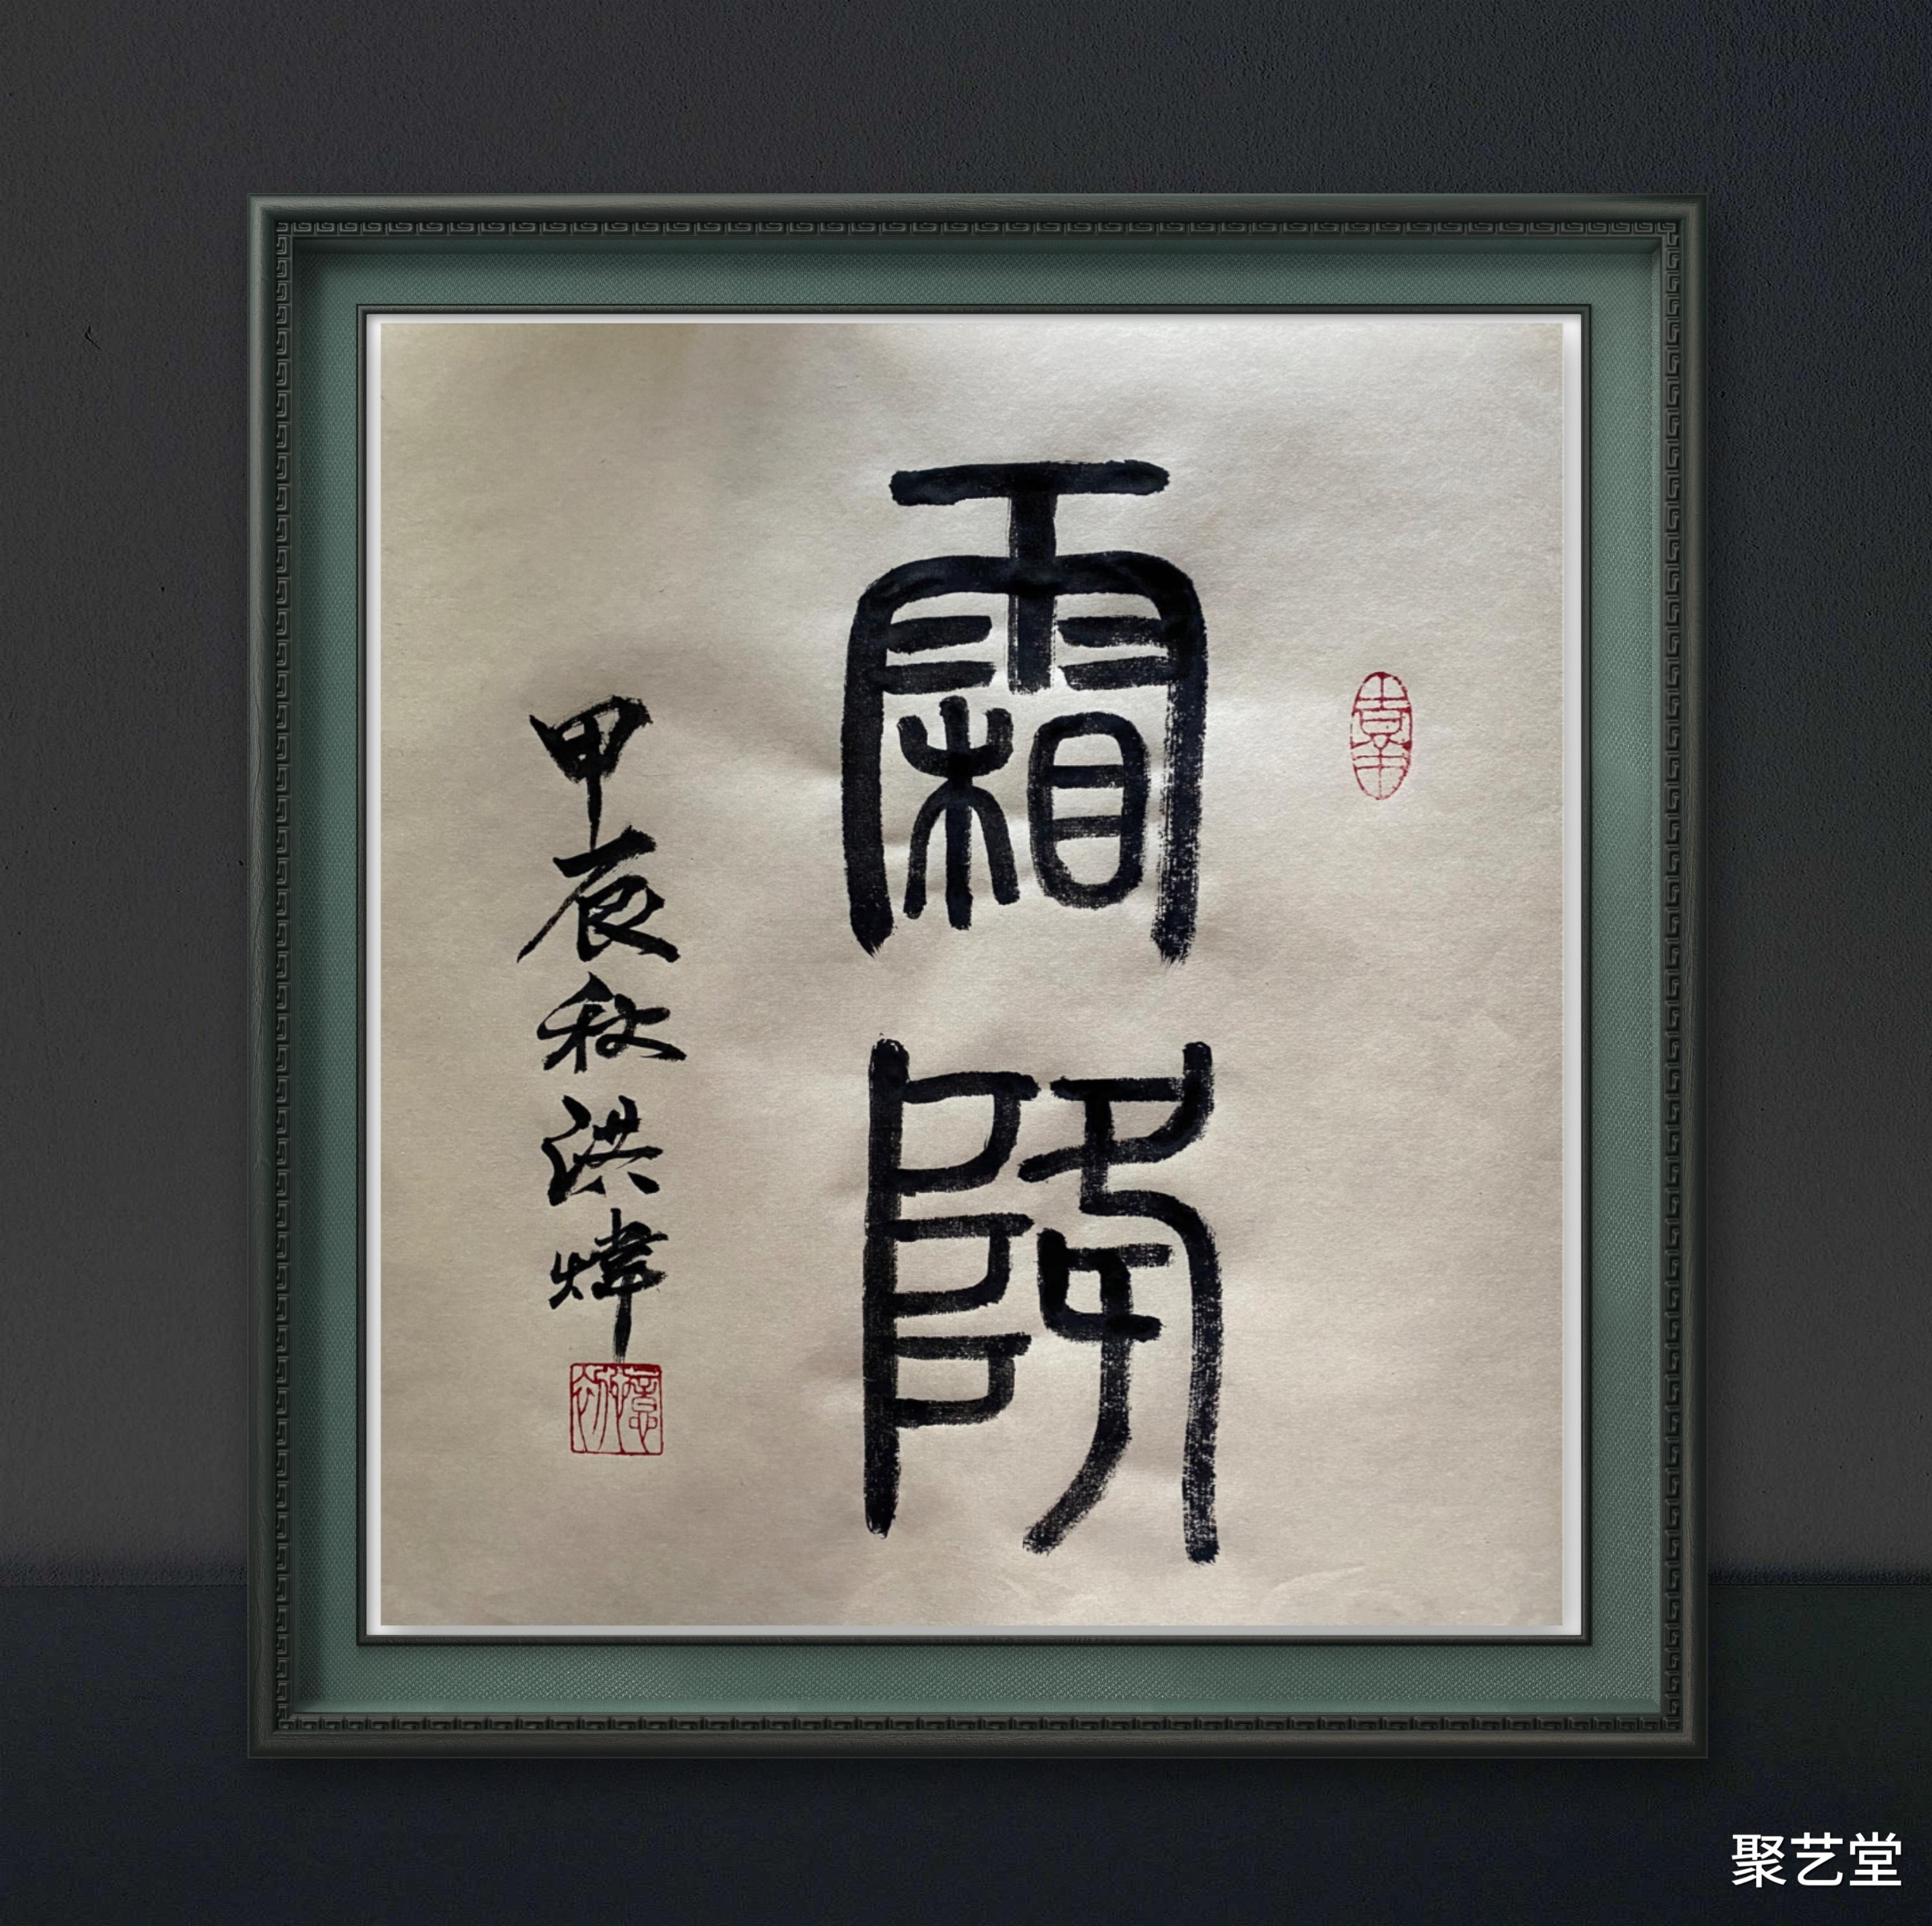 霜降
甲辰秋洪煒
聚艺堂